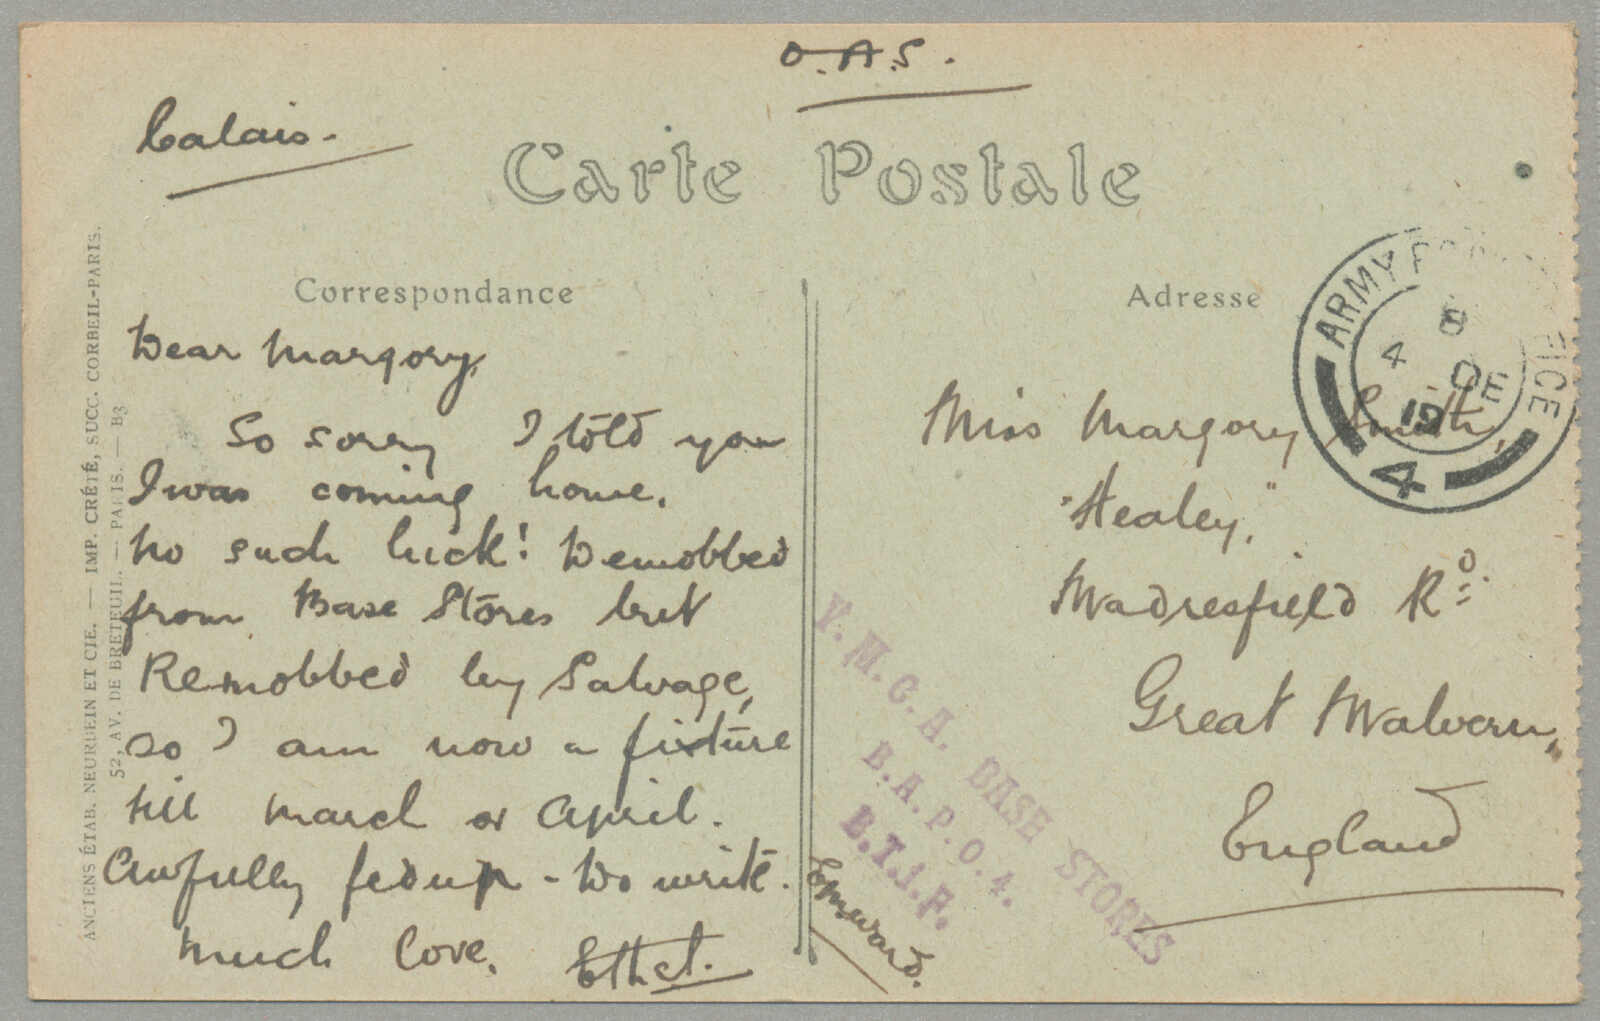 O.A.S.
Calais.
Carte Postale
Correspondance
Adresse
Dear Margory,
So sorry I told you
I was coming home.
No such luck! Demobbed
from Base Stores but
Remobbed by Salvage,
so I am now a fixture
till March or April.
Awfully fed up - Do write.
Much love. Ethel.
Miss Margory Smith,
"Healey,"
Madresfield Rd.
Great Malvern,
England
ARMY POST OFFICE
4
DE
19
4
Y.M.C.A. BASE STORES
B.A.P.O.4.
B.I.F.
ANCIENS ÉTAB. NEURDEIN ET CIE. — IMP. CRÉTÉ, SUCC. CORBEIL-PARIS.
52, AV. DE BRETEUIL. — PARIS. — B3